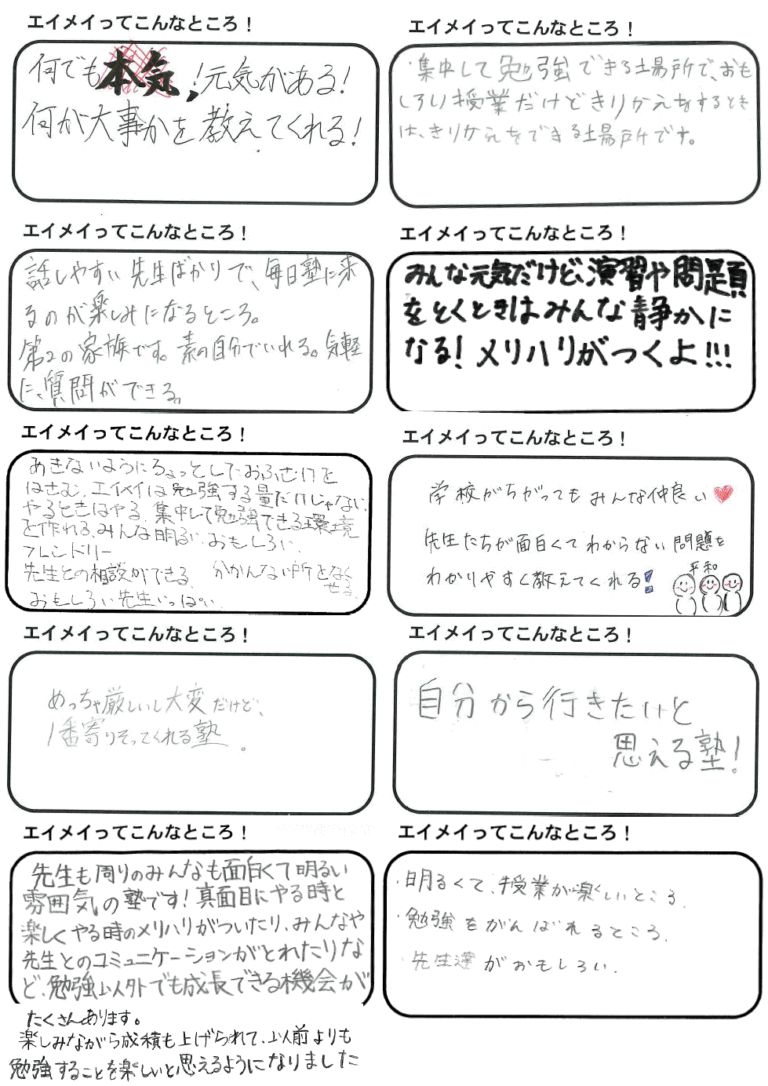 エイメイってこんなところ！
何でも本気！元気がある！
何が大事かを教えてくれる！
エイメイってこんなところ！
・集中して勉強できる場所で、おも
しろい授業だけどきりかえをするとき
は、きりかえをできる場所です。
エイメイってこんなところ！
話しやすい先生ばかりで、毎日塾に来
るのが楽しみになるところ。
第2の家族です。素の自分でいれる。気軽
に、質問ができる。
エイメイってこんなところ！
みんな元気だけど、演習や問題
をとくときはみんな静かに
なる！メリハリがつくよ!!!
エイメイってこんなところ！
あきないようにちょっとしたおふざけを
はさむ。エイメイは勉強する量だけじゃない
やるときはやる 集中して勉強できる環境
を作れる、みんな明るい、おもしろい、
フレンドリー
先生との相談ができる、わかんない所をなく
せる
おもしろい先生いっぱい
エイメイってこんなところ！
学校がちがってもみんな仲良い♥
先生たちが面白くてわからない問題を
わかりやすく教えてくれる！
平和
エイメイってこんなところ！
めっちゃ厳しいし大変だけど、
1番寄りそってくれる塾。
エイメイってこんなところ！
自分から行きたいと
思える塾！
エイメイってこんなところ！
先生も周りのみんなも面白くて明るい
雰囲気の塾です！真面目にやる時と
楽しくやる時のメリハリがついたり、みんなや
先生とのコミュニケーションがとれたりな
ど、勉強以外でも成長できる機会が
たくさんあります。
楽しみながら成績も上げられて、以前よりも
勉強することを楽しいと思えるようになりました
エイメイってこんなところ！
・明るくて、授業が楽しいところ。
・勉強をがんばれるところ。
・先生達がおもしろい。